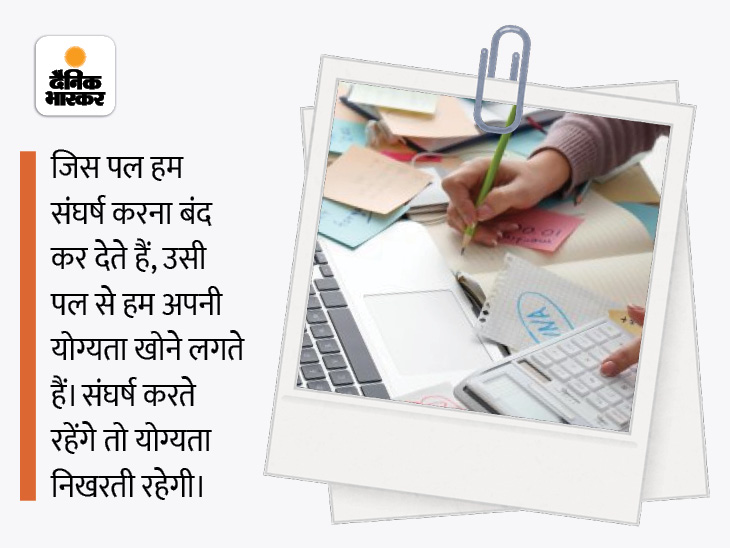 दैनिक
भास्कर
जिस पल हम
संघर्ष करना बंद
कर देते हैं, उसी
पल से हम अपनी
योग्यता खोने लगते
हैं। संघर्ष करते
रहेंगे तो योग्यता
निखरती रहेगी।